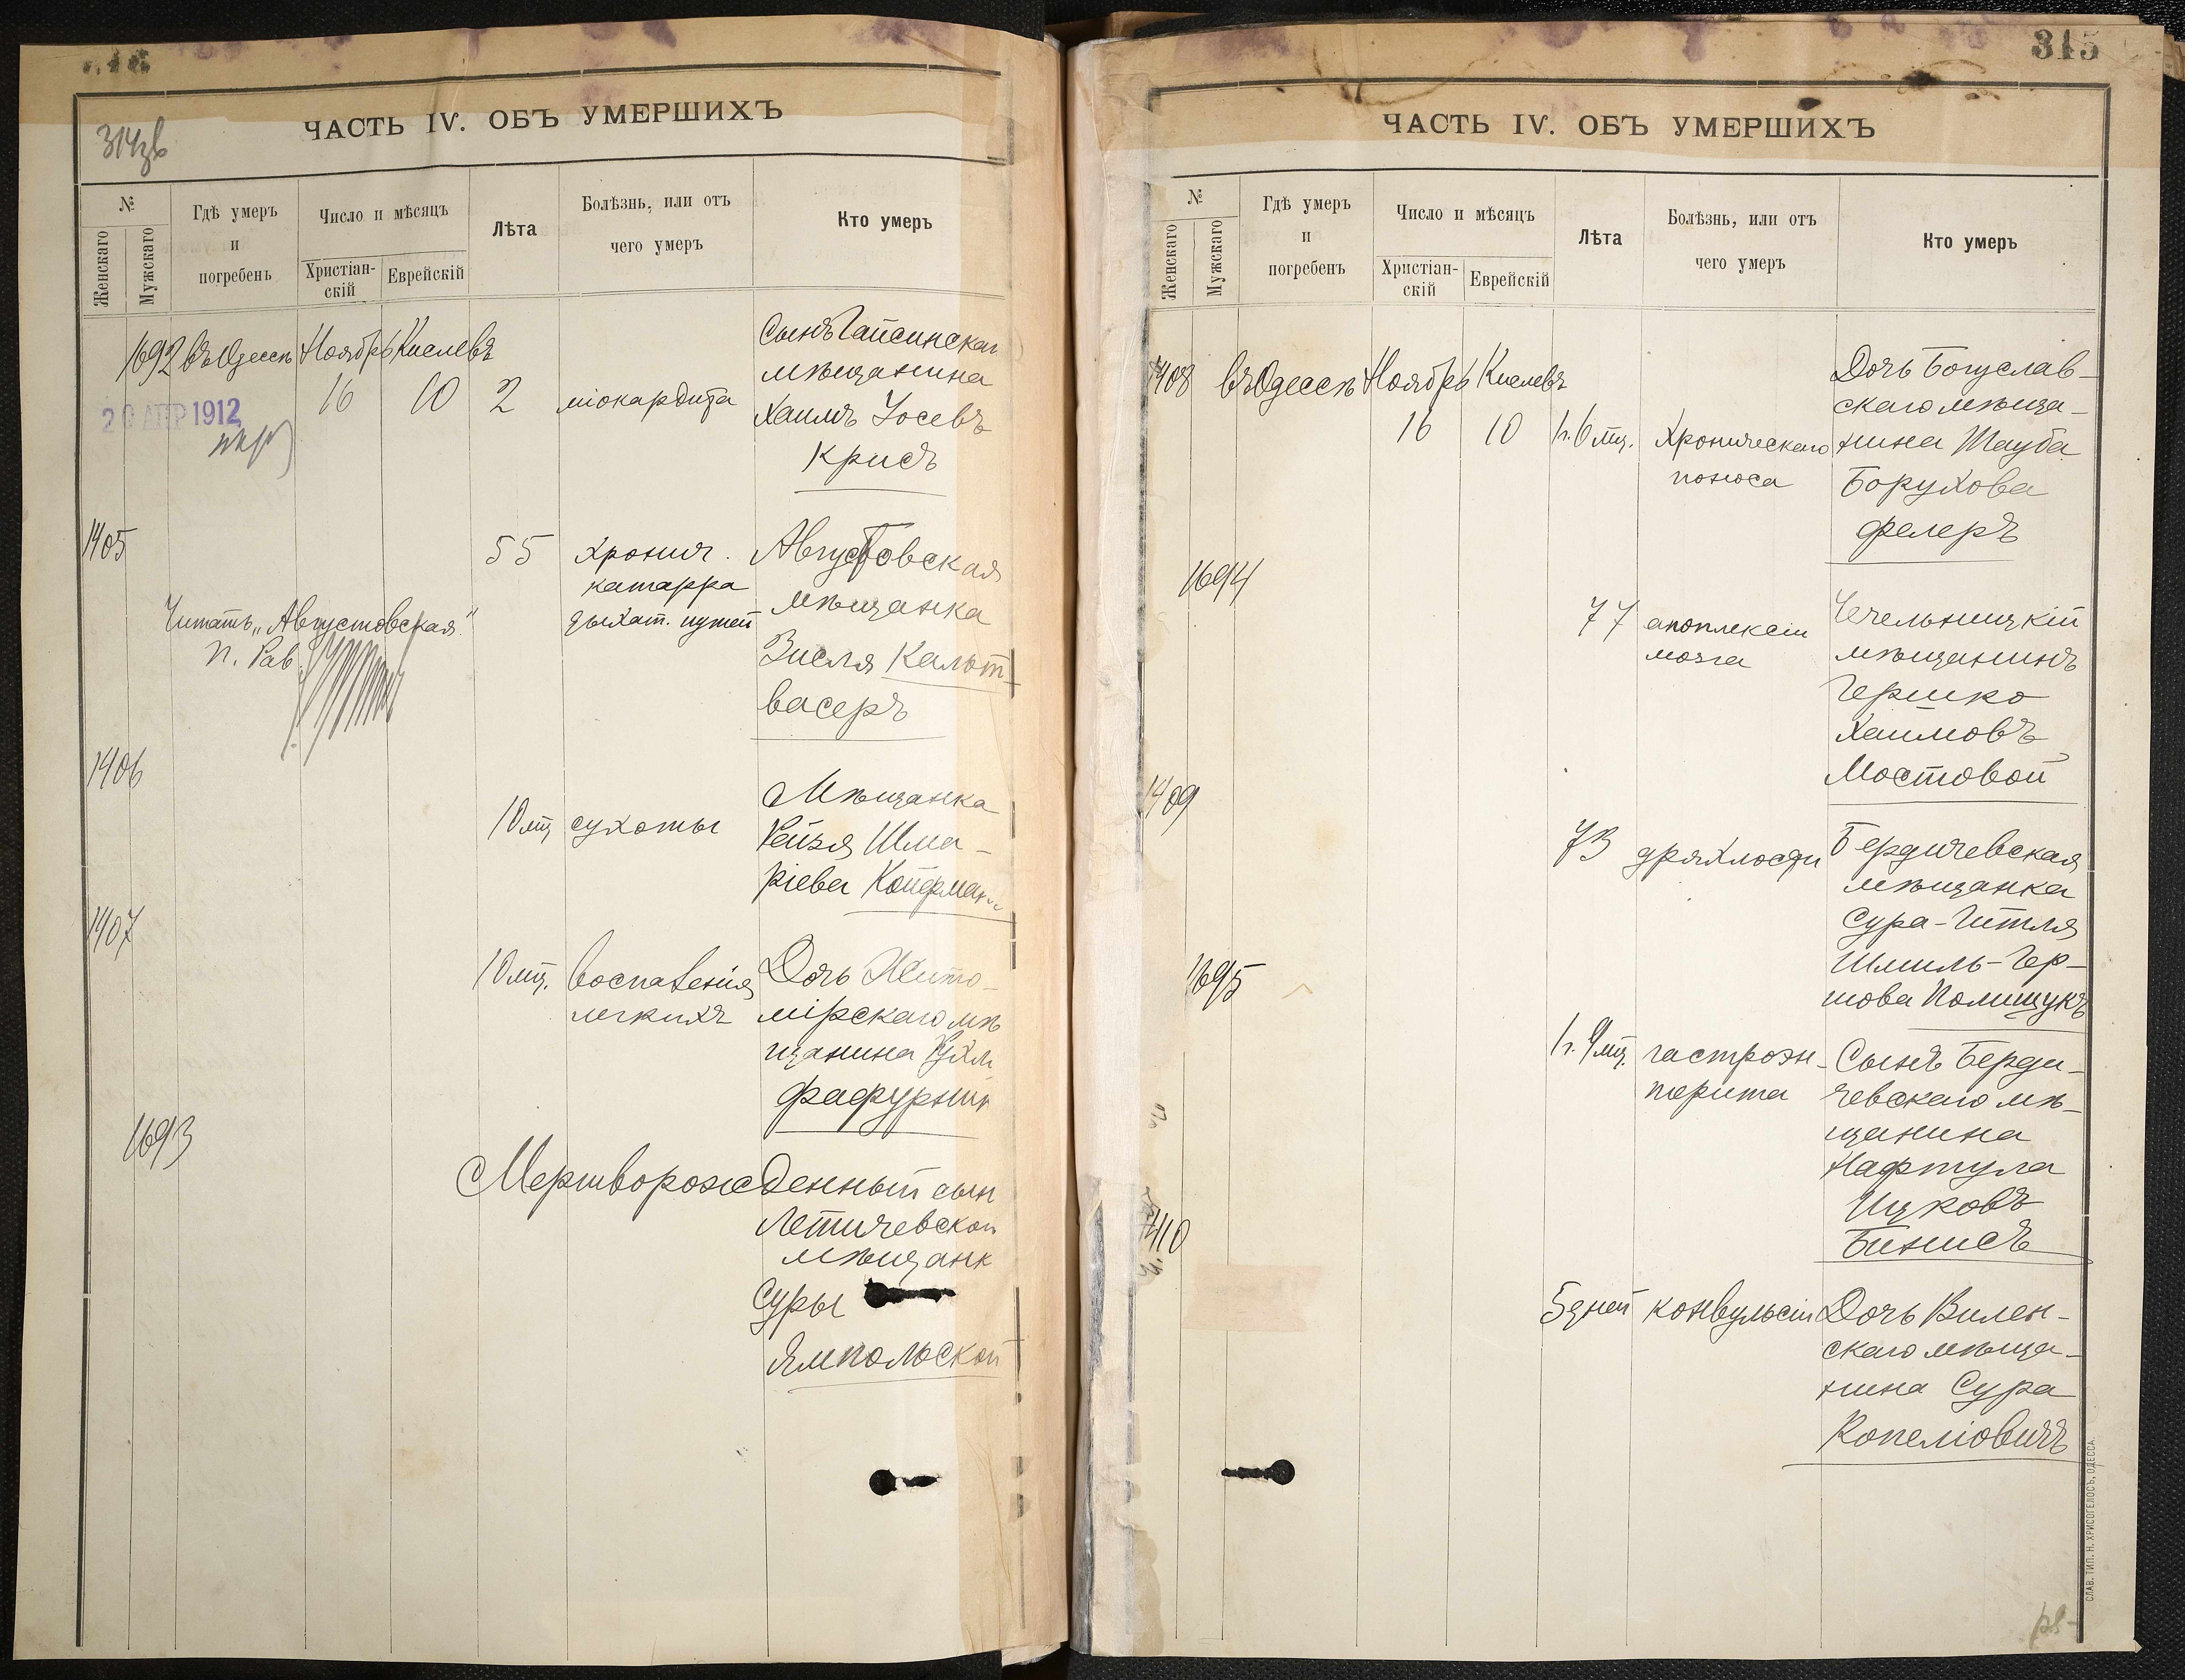 ЧАСТЬ IV. ОБЪ УМЕРШИХЪ
314зв
№
Женскаго
Мужскаго
Гдѣ умеръ
и
погребенъ
Число и мѣсяцъ
Христіан-
скій
Еврейскій
Лѣта
Болѣзнь, или отъ
чего умеръ
Кто умеръ
1692 въ Одессѣ Ноябрь Кислевъ
16 10 2 міокардита
20 АПР 1912
Сынъ Гайсинскаг
мѣщанина
Хаимъ Іосевъ
Крисъ
1405
55 хронич.
катарра
дыхат. путей
Августовская
мѣщанка
Зисля Кальт-
васеръ
Читать „Августовская"
П. Рав.
1406
10 мц сухоты
Мѣщанка
Рейзя Шма-
ріева Койфман
1407
10 мц. воспаленія
легкихъ
Дочь Жито-
мірскаго мѣ
щанина Рухл
Фафурник
1693
Мертворожденный сын
Летичевской
мѣщанк
Суры
Ямпольской
315
ЧАСТЬ IV. ОБЪ УМЕРШИХЪ
№
Женскаго
Мужскаго
Гдѣ умеръ
и
погребенъ
Число и мѣсяцъ
Христіан-
скій
Еврейскій
Лѣта
Болѣзнь, или отъ
чего умеръ
Кто умеръ
1408 въ Одессѣ Ноябрь Кислевъ
16 10 1 г. 6 мц. хроническаго
поноса
Дочь Богуслав-
скаго мѣща-
нина Тауба
Борухова
Фелеръ
1694
77 апоплексіи
мозга
Чечельницкій
мѣщанинъ
Гершко
Хаимовъ
Мостовой
1409
73 дряхлости
Бердичевская
мѣщанка
Сура-Гитля
Шмиль-Гер-
шова Полищукъ
1695
1 г. 9 мц. гастроэн-
терита
Сынъ Берди-
чевскаго мѣ-
щанина
Нафтула
Ицковъ
Бинисъ
1410
5 дней конвульсіи
Дочь Вилен-
скаго мѣща-
нина Сура
Копеліовичъ
СЛАВ. ТИП. Н. ХРИСОГЕЛОСЪ, ОДЕССА.